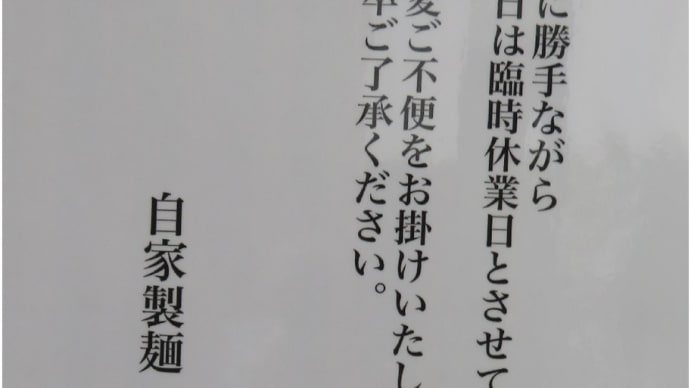 に勝手ながら
日は臨時休業日とさせて
変ご不便をお掛けいたし
卒ご了承ください。
自家製麺